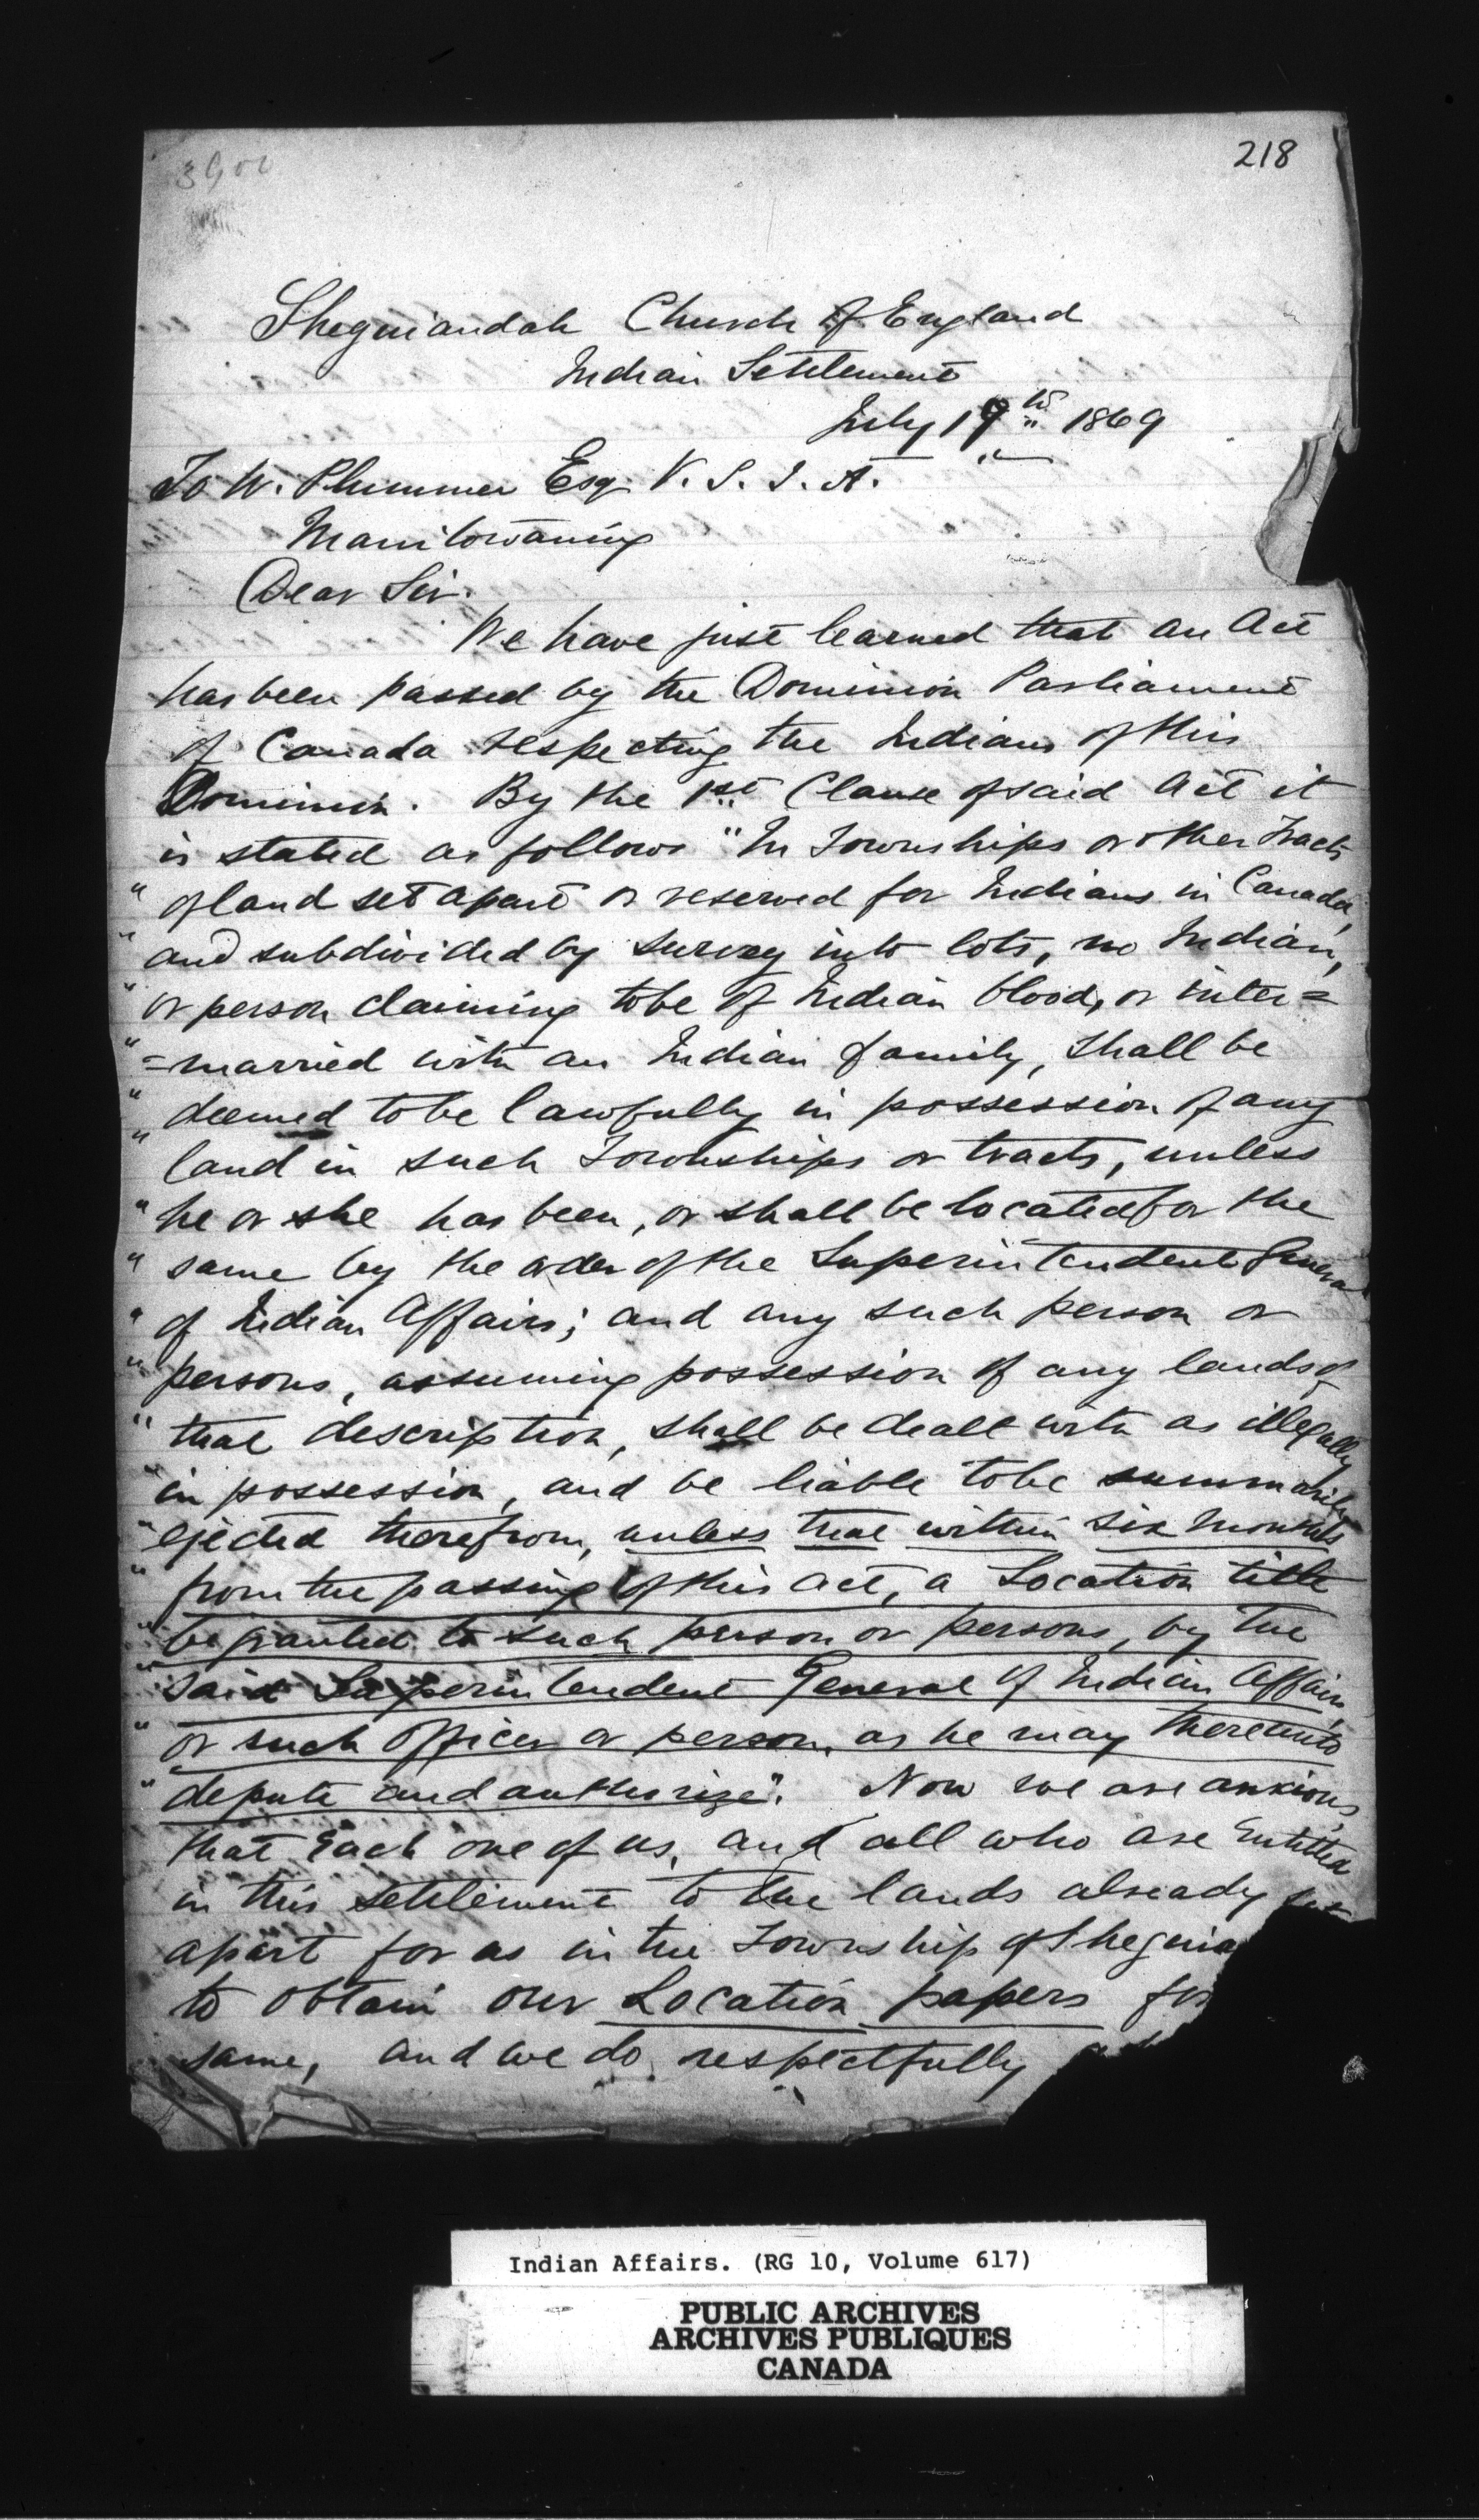 218
Sheguiandah Church of England
Indian Settlement
July 19th 1869
To W. Plummer Esq V. S. I. A.
Manitowaning
Dear Sir.
We have just learned that an Act
has been passed by the Dominion Parliament
of Canada respecting the Indians of this
Dominion. By the 1st Clause of said Act it
is stated as follows "In Townships or other Tracts
" of land set apart or reserved for Indians in Canada,
" and subdivided by survey into lots, no Indian,
" or person claiming to be of Indian blood, or inter=
" =married with an Indian family, shall be
" deemed to be lawfully in possession of any
" land in such Townships or tracts, unless
" he or she has been, or shall be located for the
" same by the order of the Superintendent General
" of Indian Affairs; and any such person or
" persons, assuming possession of any lands of
" that description, shall be dealt with as illegally
" in possession, and be liable to be summarily
" ejected therefrom, unless that within six months
" from the passing of this act, a Location title
" be granted to such person or persons, by the
" said Superintendent General of Indian Affairs,
" or such Officer or person, as he may thereunto
" depute and authorize". Now we are anxious
that Each one of us, and all who are Entitled
in this settlement to the lands already set
apart for us in the Township of Sheguia
to obtain our Location papers for
same, and we do respectfully
Indian Affairs. (RG 10, Volume 617)
PUBLIC ARCHIVES
ARCHIVES PUBLIQUES
CANADA